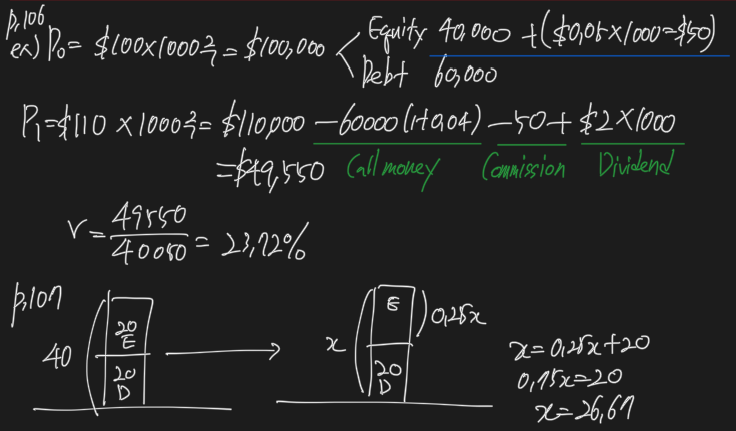 p.106
ex) P₀ = $100×1000주 = $100,000 < Equity 40,000 + ($0,05×1000=$50)
Debt 60,000
P₁ = $110 × 1000주 = $110,000 - 60000(1+0,04) - 50 + $2×1000
= $49,550 Call money Commission Dividend
r = 49550 / 40050 = 23,72%
p.107
40 20 E 20 D → x E 20 D 0,25x
x = 0,25x + 20
0,75x = 20
x = 26,67